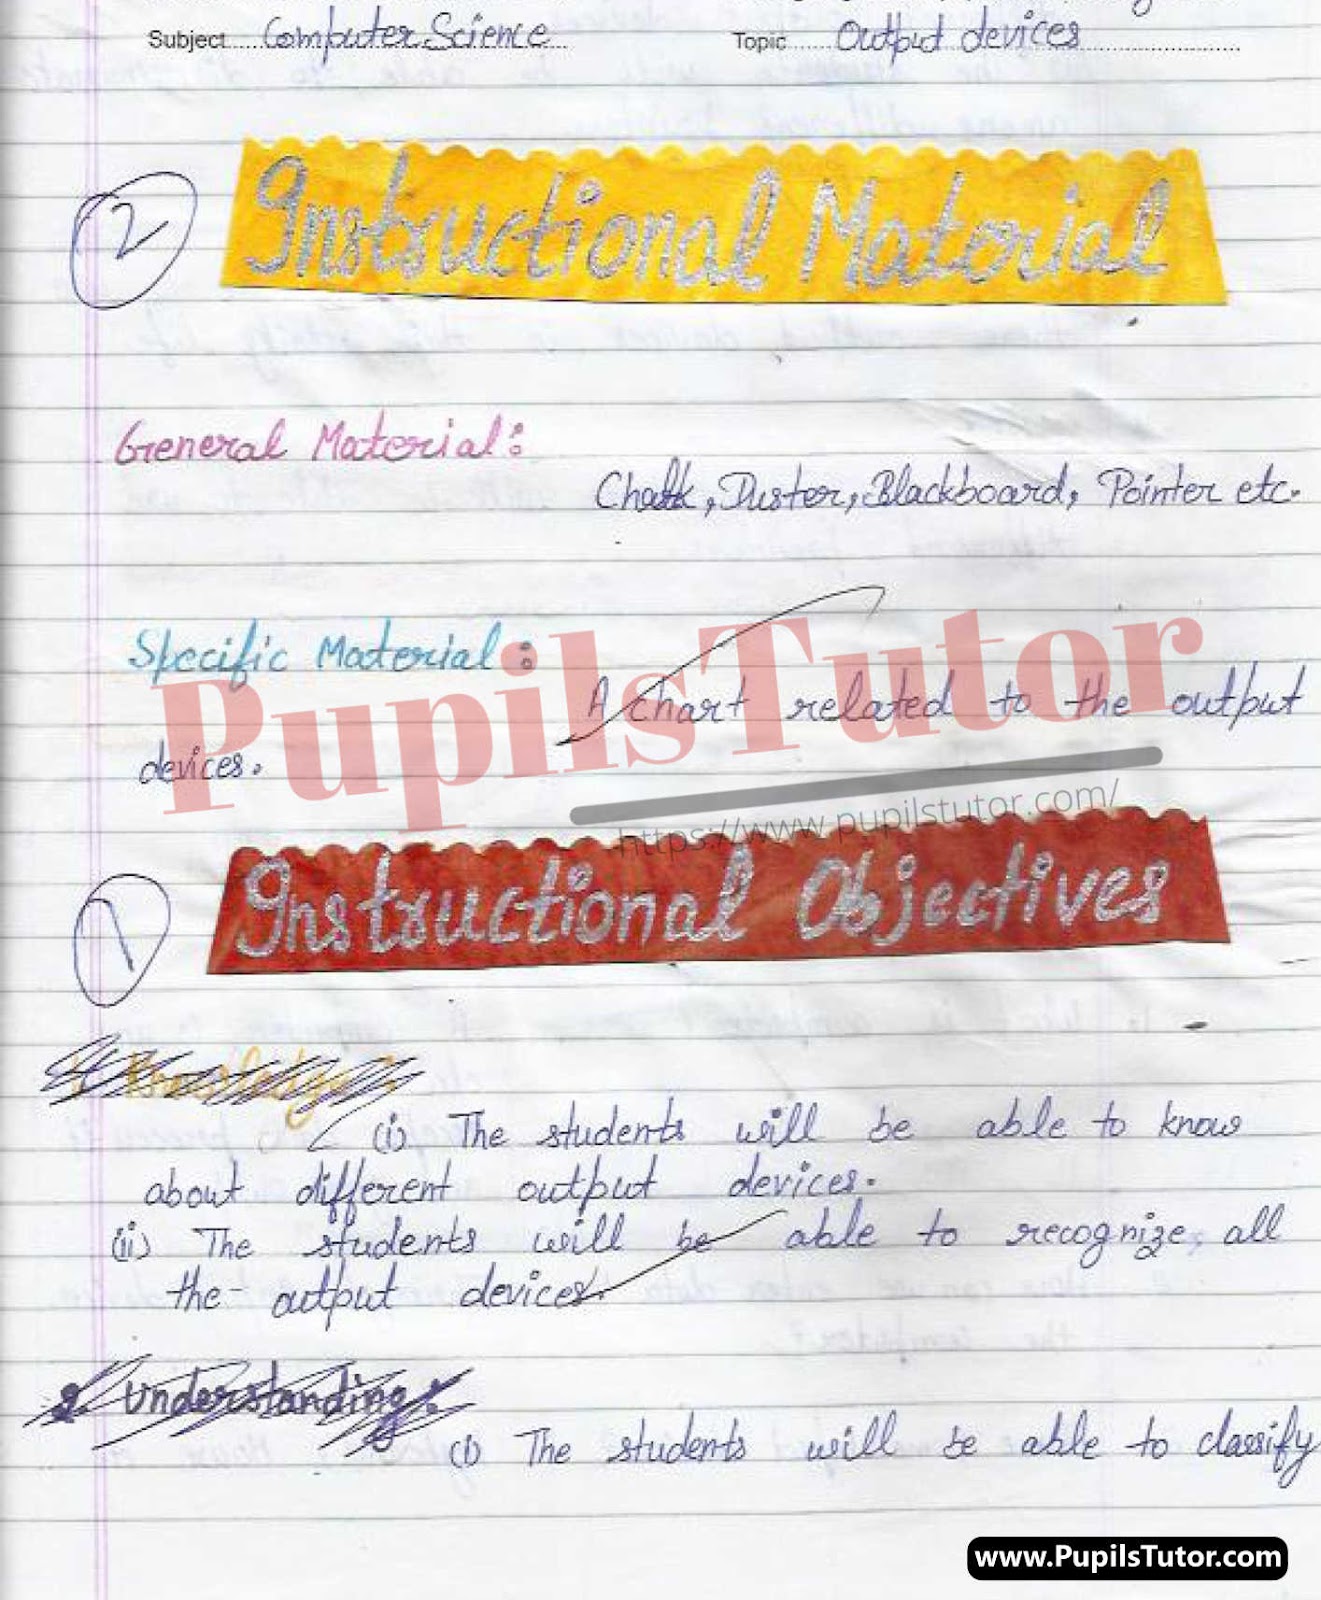 Subject Computer Science Topic Output devices
2 Instructional Material
General Material:
Chalk, Duster, Blackboard, Pointer etc.
Specific Material:
A chart related to the output
devices.
PupilsTutor
https://www.pupilstutor.com/
1 Instructional Objectives
Knowledge:
(i) The students will be able to know
about different output devices.
(ii) The students will be able to recognize all
the output devices.
2 Understanding:
(i) The students will be able to classify
www.PupilsTutor.com